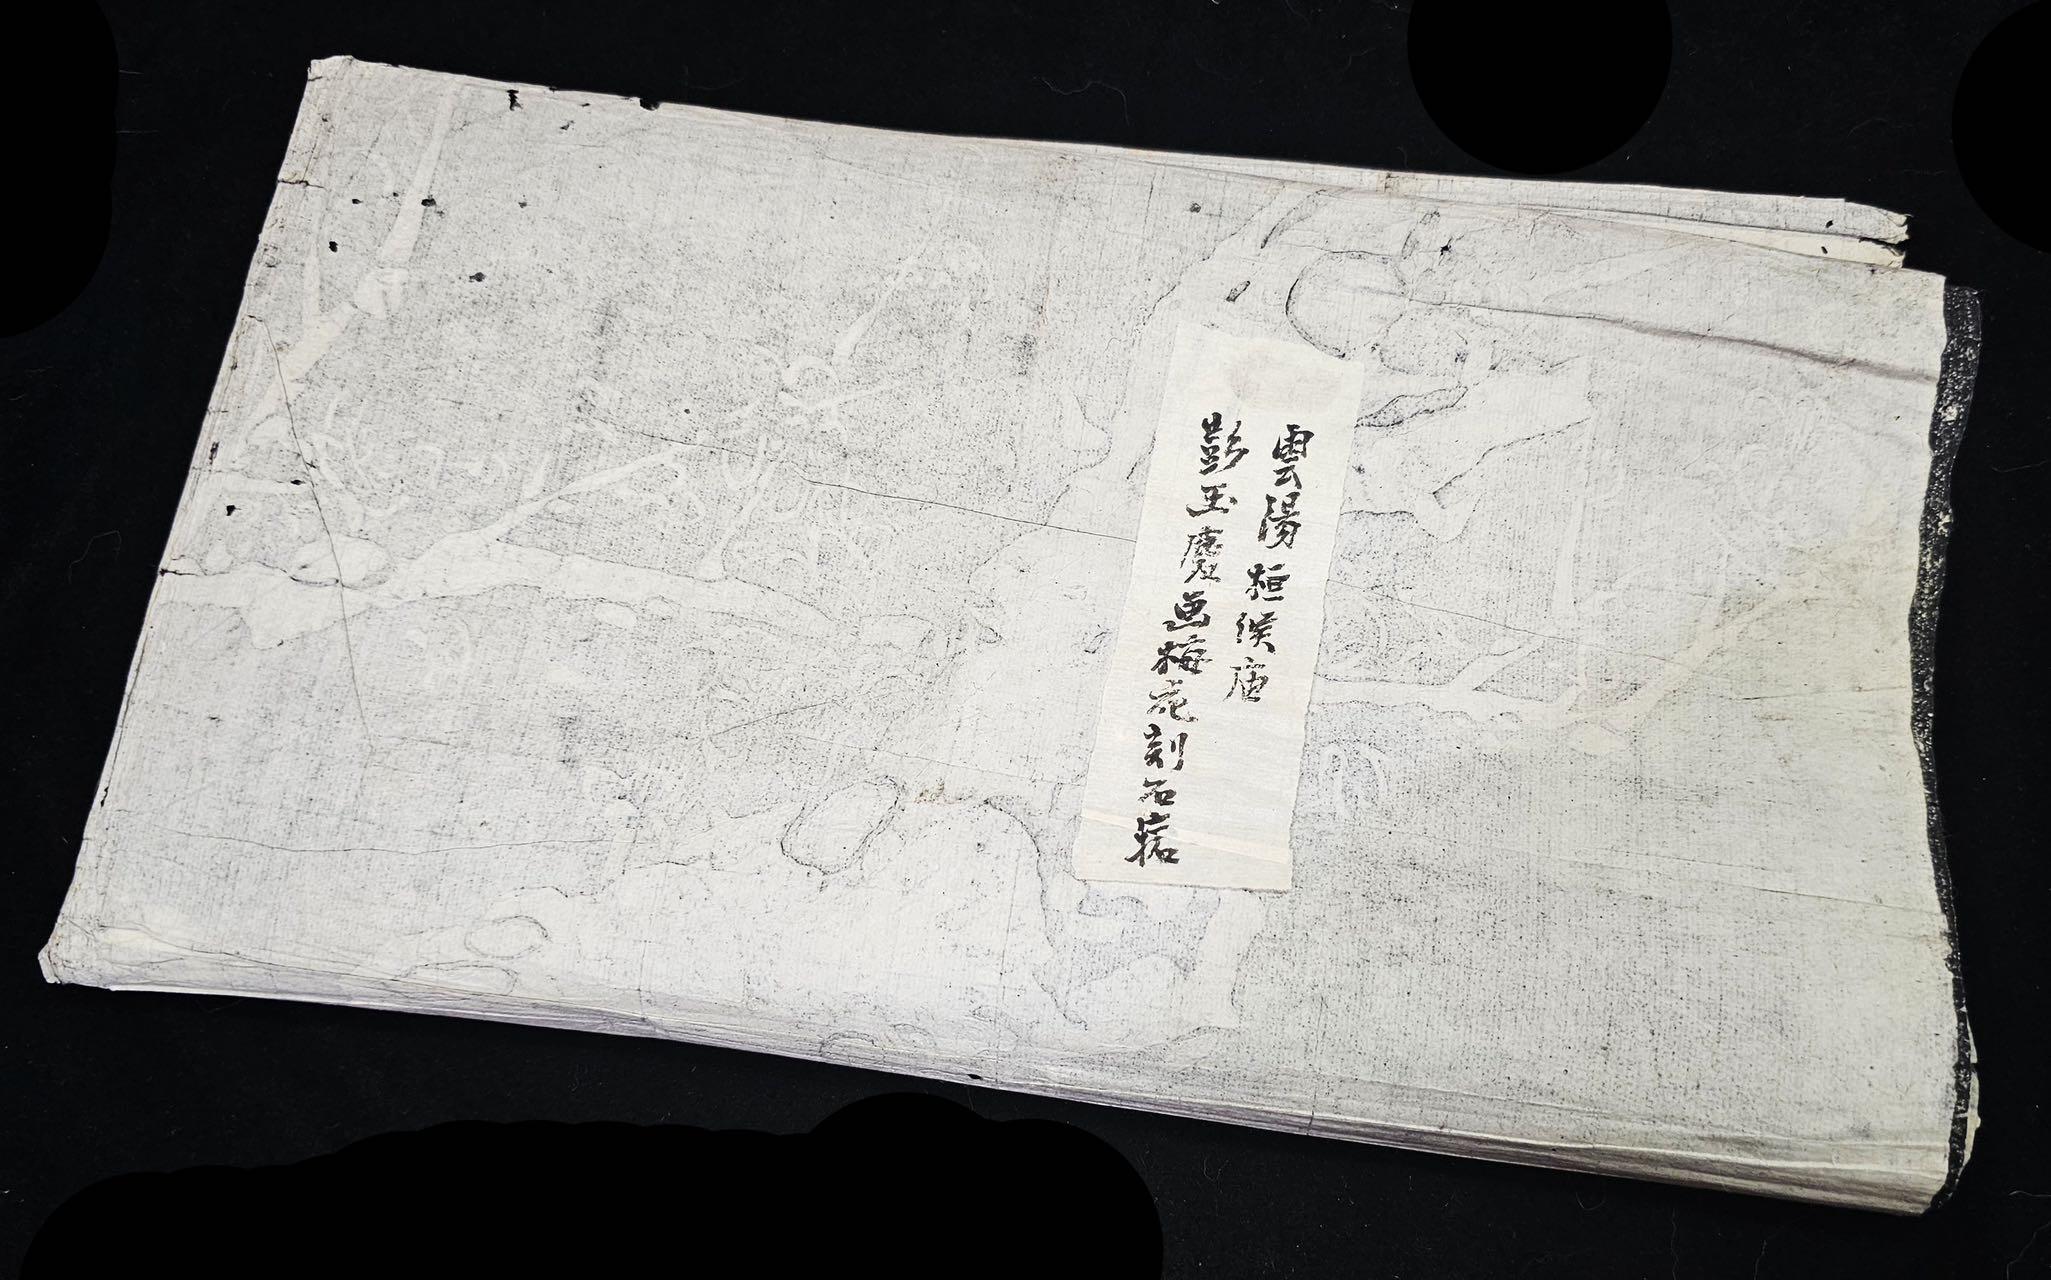 雲陽桓侯庙
彭玉麐画梅花刻石拓